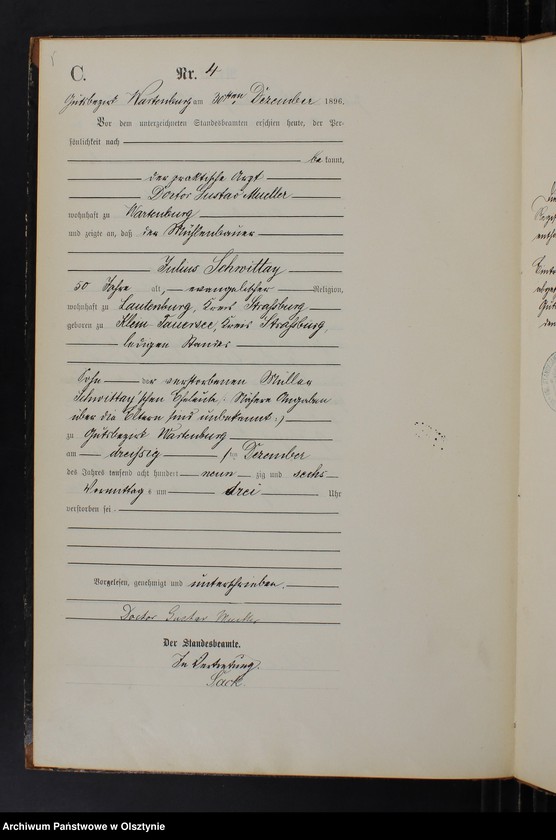 C.
Nr. 4
Gutsbezirk Wartenburg am 30sten Dezember 1896.
Vor dem unterzeichneten Standesbeamten erschien heute, der Per-
sönlichkeit nach
be kannt,
der praktische Arzt
Doctor Gustav Mueller
wohnhaft zu Wartenburg
und zeigte an, daß der Mühlenbauer
Julius Schwittay
50 Jahre alt, evangelischer Religion,
wohnhaft zu Lautenburg, Kreis Straßburg
geboren zu Klein Tauersee, Kreis Straßburg,
ledigen Standes
Sohn der verstorbenen Müller
Schwittay'schen Eheleute (: Nähere Angaben
über die Eltern sind unbekannt :)
zu Gutsbezirk Wartenburg
am dreißig ten Dezember
des Jahres tausend acht hundert neun zig und sechs
Vormittag s um drei Uhr
verstorben sei.
Vorgelesen, genehmigt und unterschrieben.
Doctor Gustav Mueller
Der Standesbeamte.
In Vertretung.
Sack
Archiwum Państwowe w Olsztynie